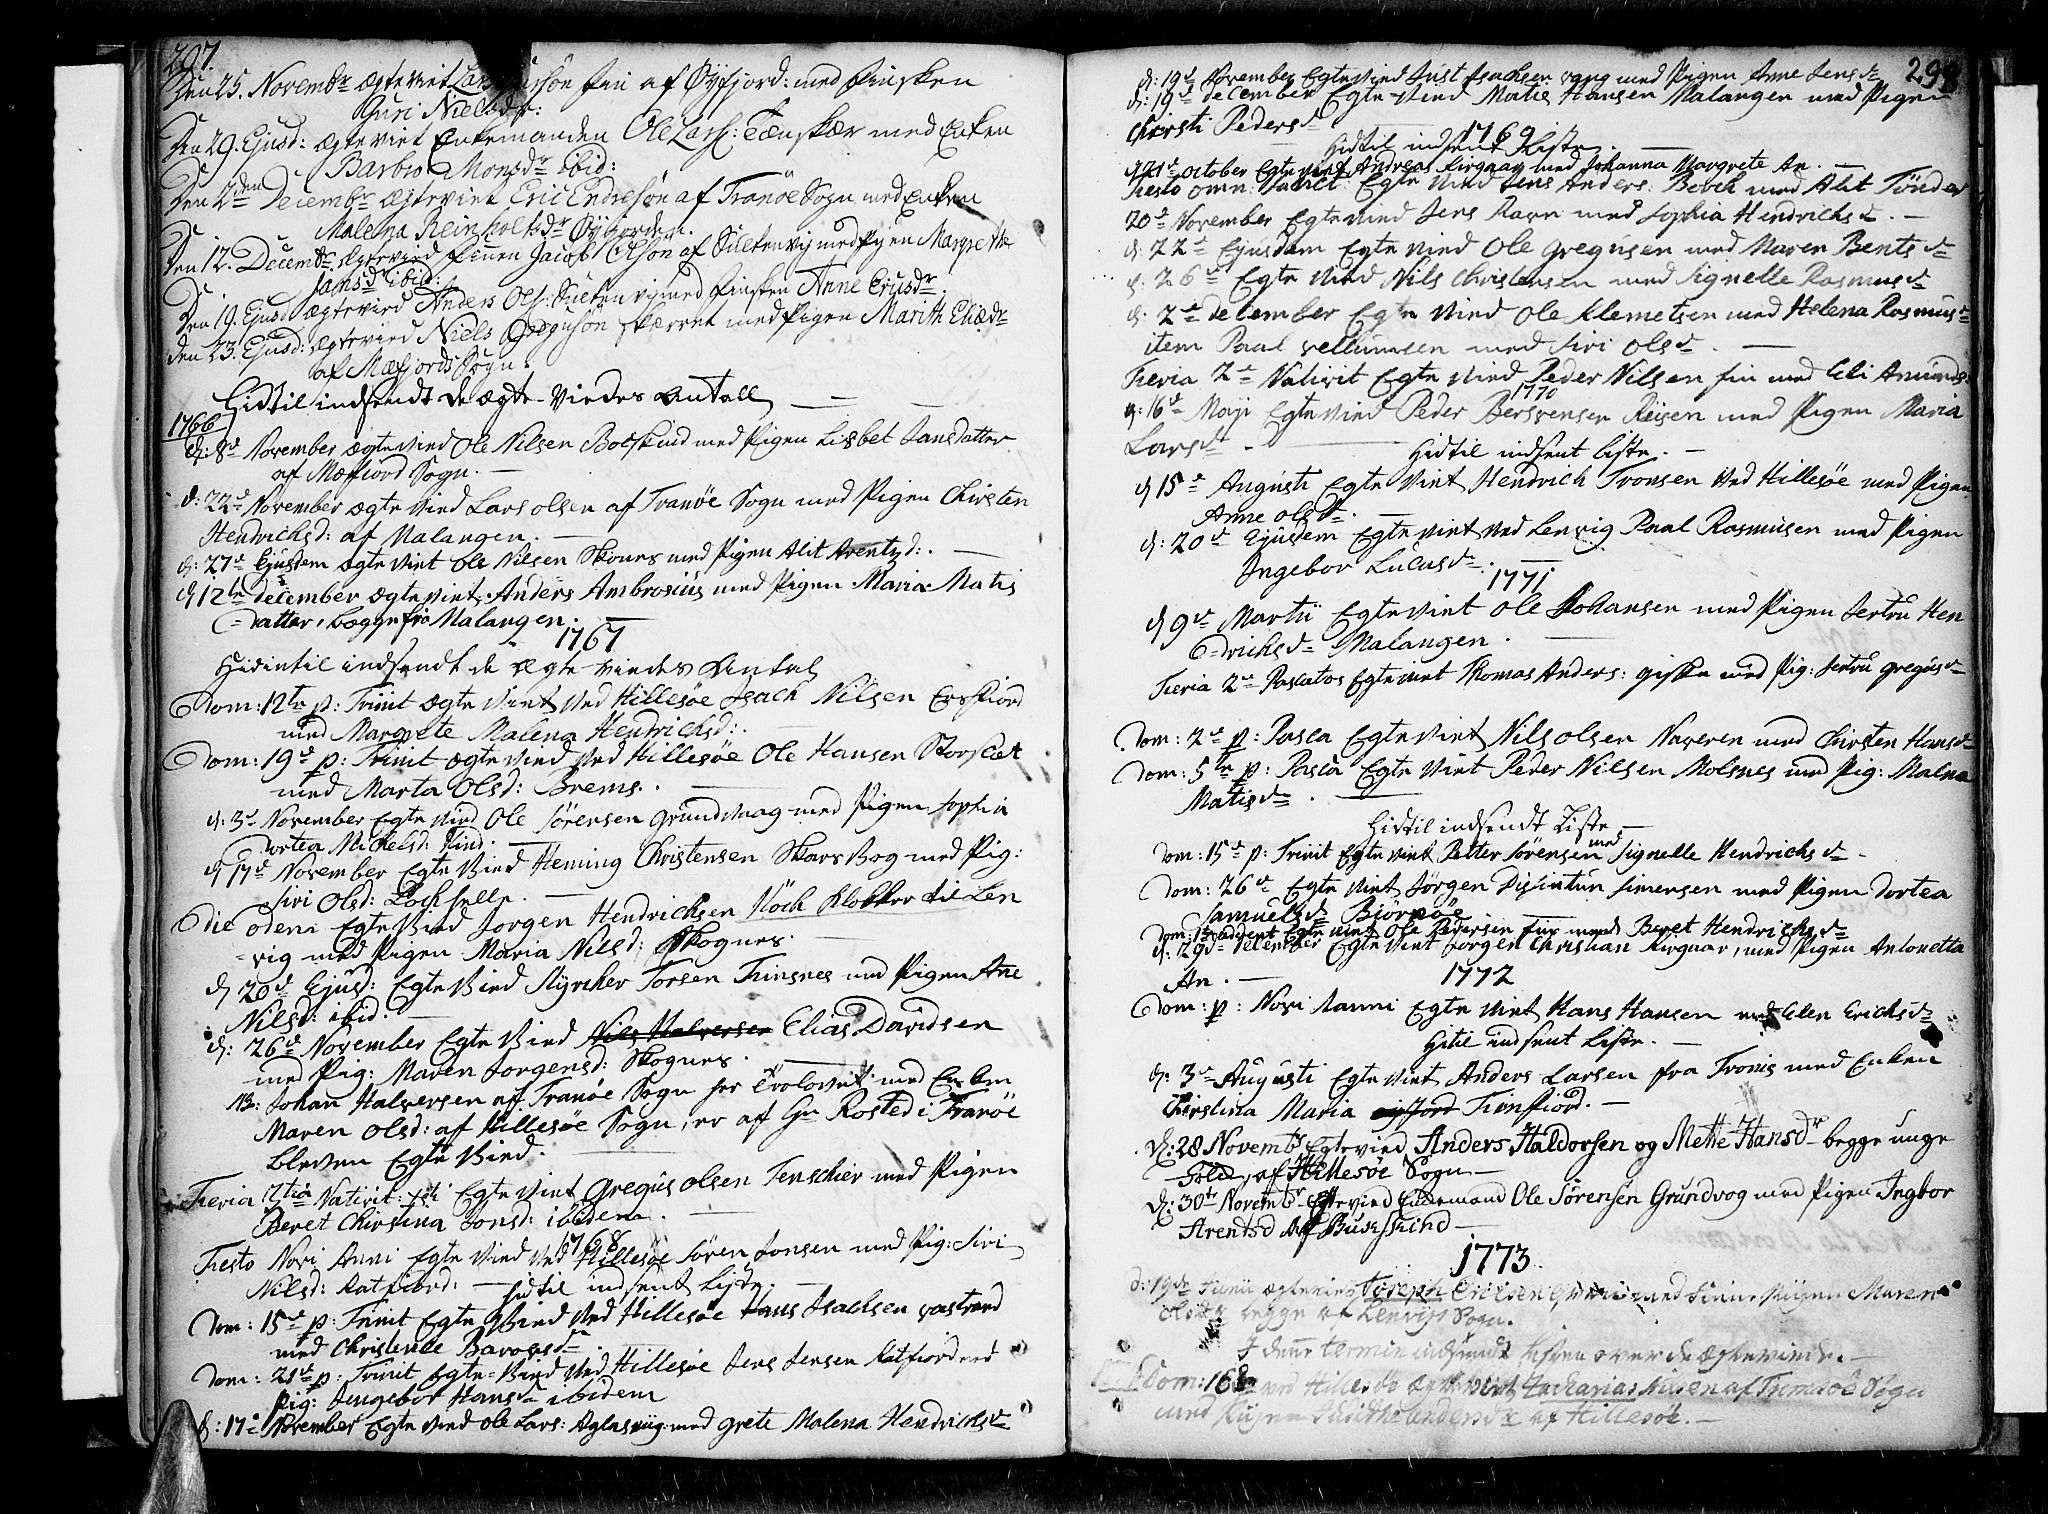 297.
Den 25. Novembr ægteviet Lars søn fin af Øyfjord: med finsken
Guri Nielsdr:
Den 29. Ejusd: ægteviet Enkemanden Ole Lars: Tænskær med Enken
Barbro Monsdr ibid:
Den 2den Decembr ægteviet Eric Endresøn af Tranöe Sogn med Enken
Malena Reinholtsdr Øyjorden.
Den 12. Decembr ægtevied finnen Jacob Olsön af med Pigen Margrethe
Jansdr ibid:
Den 19. Ejusd ægtevied Anders Ols: med finsken Anne
den 23. Ejusd: ægtevied Niels Gregusön skærret med Pigen Marith Eliædr
af Mæfjords Sogn.
Hidtil indsendt de ægte-viedes Antall
1766
d: 8de November ægte vied Ole Nilsen Botskind med Pigen Lisbet Jansdatter
af Mæffiord Sogn.
d: 22de November ægte vied Lars olsen af Tranöe Sogn med Pigen Chirsten
Hendrichsd: af Malangen.
d: 27de Ejusdem ægte viet Ole Nilsen Skones med Pigen Alit Arentzd:.
d 12te december ægte viet Anders Ambrosius med Pigen Maria Matis
datter, begge fra Malangen.
1767
Hidintil indsendt de ægte viedes Antal
Dom: 12te p: Trinit ægte viet ved Hillesöe Isach Nilsen Ersfiord
med Margrete Malena Hendrichsd:.
Dom: 19de p: Trinit ægte vied ved Hillesöe Ole Hansen Storslet
med Marta Olsd: Brems.
d: 3de November Egte vied Ole Sörensen grundvaag med Pigen Sophia
Dortea Michelsd: ibid.
d 17de November Egte Vied Heming Christensen Skarsvog med Pig:
Siri Olsd:
Die odem Egte Vied Jorgen Hendrichsen Köch Klokker til Len
vig med Pigen Maria Nilsd: Skognes.
d 20de Ejusd: Egte Vied Torsen Finsnes med Pigen Ane
Nilsd: ibid.
d: 26de November Egte Vied Nils Halversen Elias Davidsen
med Pig: Maren Jorgensd: Skognes.
NB: Johan Halversen af Tranöe Sogn her trolovet med Enken
Maren Olsd: af Hillesöe Sogn, er af Hr Rosted i Tranöe
bleven Egte Vied.
Feria 3tia Nativit: Xsti Egte viet gregus olsen Tenschier med Pigen
Beret Chirstina Jonsd: ibidem.
1768
Festo Novi Anni Egte vied ved Hillesöe Sören Jonsen med Pig: Siri
Nilsd: Katfiord: — Hidtil indsent liste.
Dom: 15de p: Trinit Egte Vied ved Hillesöe Hans Isachsen vastrand
med Christence
Dom: 21de p: Trinit Egte-Vied ved Hillesöe Jens Jensen Katfiord med
Pig: Ingebor Hansd ibidem
d: 17de November Egte vied Ole Lars: med grete Malena Hendrichsd

298
d: 19de November Egte vied Just Isachsen vang med Pigen Anne Jensd
d: 19de december Egte-vied Matis Hansen Malangen med Pigen
Chirsti Pedersd
1769
Hidtil indsent liste.
d 21de october Egte viet Andreas Kirgaar med Johanna Margrete An.
Festo omn: Sanct: Egte vied Jens Anders: Borch med Alit Tönder
20de November Egte vied Jens Ravn med Sophia Hendrichsd.
d: 22de Ejusdem Egte vied Ole Gregusen med Maren Bentsd
d: 26de Egte vied Nils Christensen med Signelle Rasmusd
d: 2de december Egte vied Ole Klemetsen med Helena Rasmusd
item Paal med Siri Olsd.
Feria 2de Nativit Egte vied Peder Nilsen fin med Eli Amunds
1770
d: 16de Maji Egte vied Peder Bersvensen Reisen med Pigen Maria
Larsd
Hidtil indsent liste.
d 15de Augusti Egte viet Hendrich Tronsen ved Hillesöe med Pigen
Anne Olsd.
d: 20de Ejusdem Egte viet ved Lenvig Paal Rasmusen med Pigen
Ingebor Lucasd.
1771
d 9de Martii Egte viet Ole Johansen med Pigen Jertru Hen
drichsd Malangen.
Feria 2de Pascatos Egte viet Thomas Anders: giske med Pig: Jertru gregusd
Dom: 2de p: Pasca Egte viet Nils olsen Naveren med Chirsten Hansd
Dom: 5te p: Pasca Egte viet Peder Nilsen Molsnes med Pig: Malna
Matisd.
Hidtil indsendt Liste
Dom: 15de p: Trinit Egte viet Petter Sörensen med Signelle Hendrichsd
Dom: 26de Egte viet Jörgen Simensen med Pigen Dortea
Samuelsd Björnöe
Dom: 1 advent Egte viet Ole Pedersen fin med Beret Hendrichsd
d: 29de december Egte viet Jorgen Christian Kirgaar, med Pigen Antonetta
An.
1772
Dom: p: Novi Anni Egte viet Hans Hansen med Elen Erichsd
Hitil indsent liste.
d: 3de Augusti Egte viet Anders Larsen fra Troms med Enken
Chirstina Maria Eyfjord Finfiord.
d: 28 Novembr Egtevied Anders Haldorsen og Mette Hansdr begge unge
Folk, af Hillesöe Sogn.
d: 30te Novembr Egtevied Enkemand Ole Sörensen Grundvog med Pigen Ingbor
Arentsd af Buskskind
1773
d: 19de Junii ægteviet Joseph Ericsen med Pigen Maren
Olsdr begge af Lenvigs Sogn.
I denne termin indsendt listen over de ægteviede.
Dom: 16de ved Hillesöe ægteviet Zacharias af Tromsöe Sogn
med Pigen Judithe Andersdr af Hillesöe.